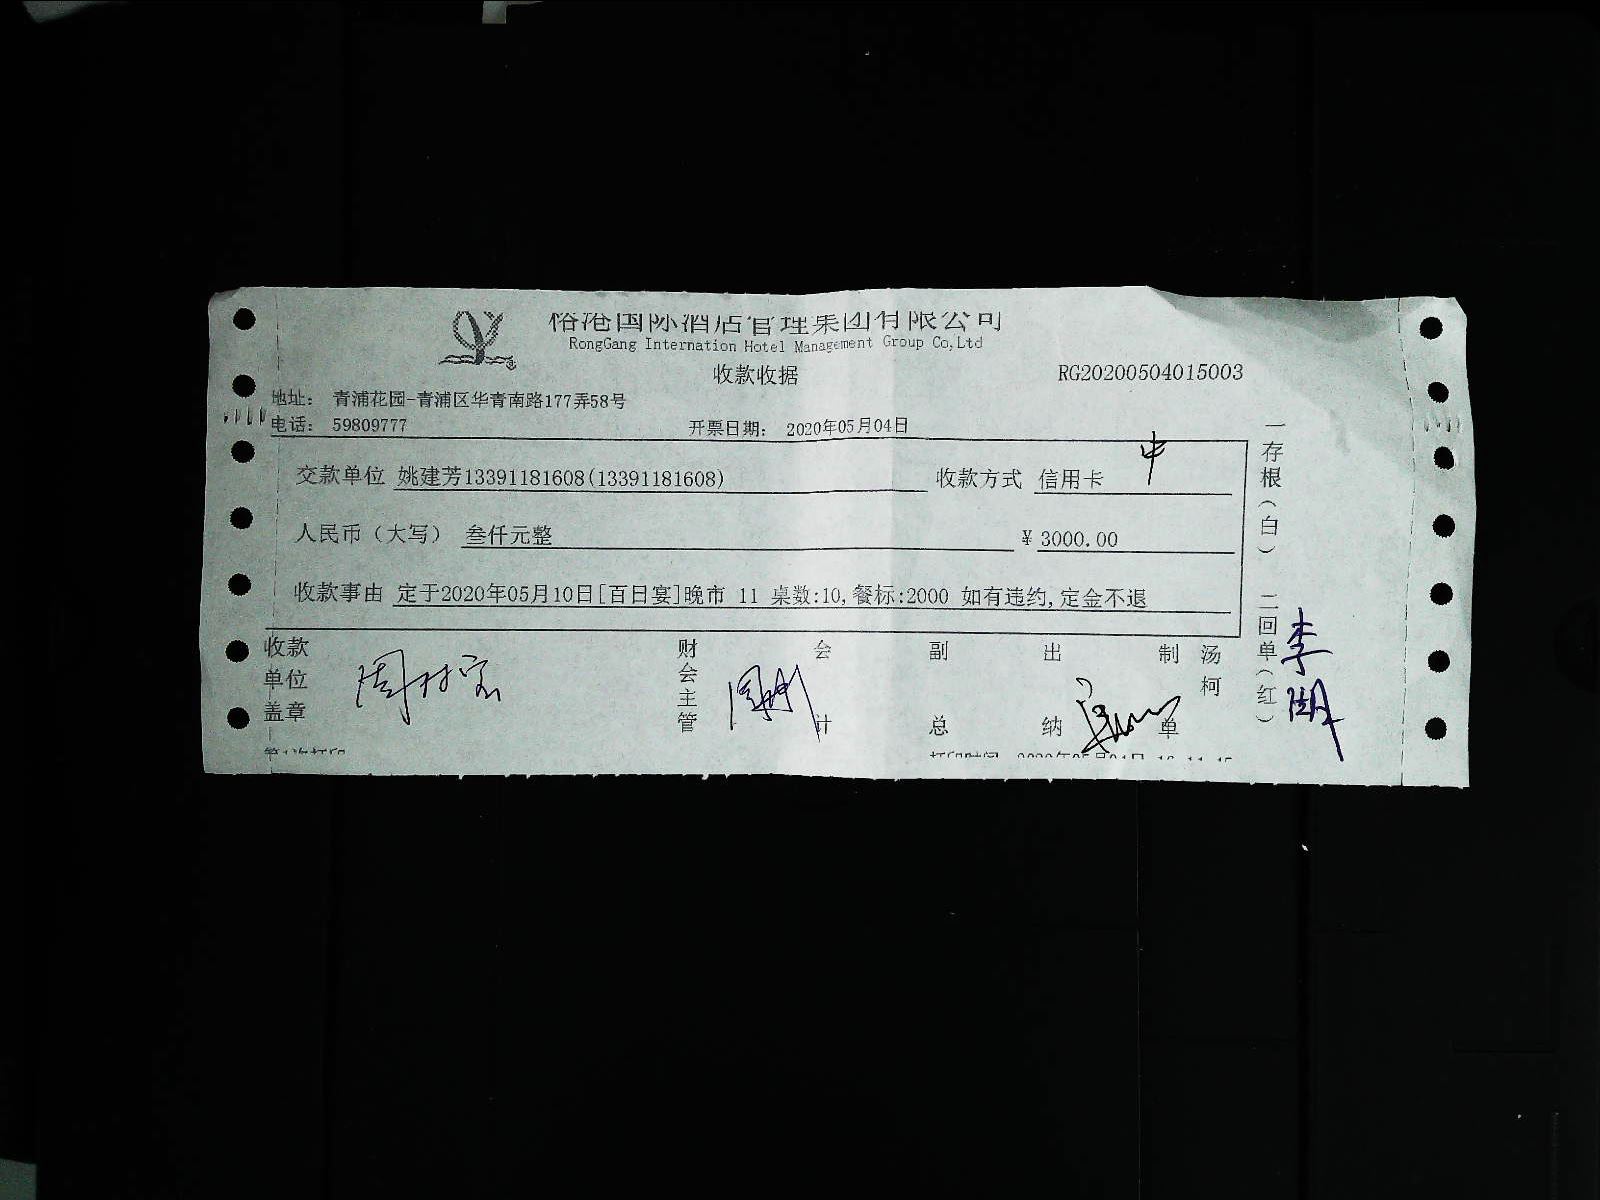 国际酒店管理集团有限公司
RongGang Internation Hotel Management Group Co,Ltd
收款收据
RG20200504015003
地址： 青浦花园-青浦区华青南路177弄58号
电话： 59809777
开票日期： 2020年05月04日
交款单位 姚建芳13391181608(13391181608) 收款方式 信用卡 中
人民币（大写） 叁仟元整 ¥3000.00
收款事由 定于2020年05月10日[百日宴]晚市 11 桌数:10,餐标:2000 如有违约,定金不退
收款单位盖章
财会主管
会计
副总
出纳
制单
汤柯
一存根（白） 二回单（红）